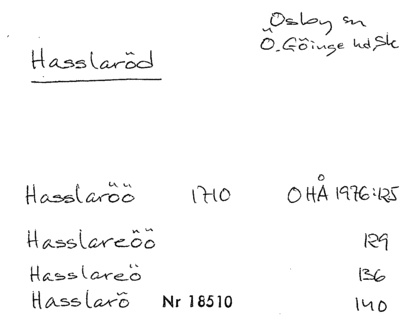 Osby sn
Hasslaröd Ö. Göinge hd, Sk
Hasslaröö 1710 OHÅ 1976:125
Hasslareöö 129
Hasslareö 136
Hasslarö Nr 18510 140